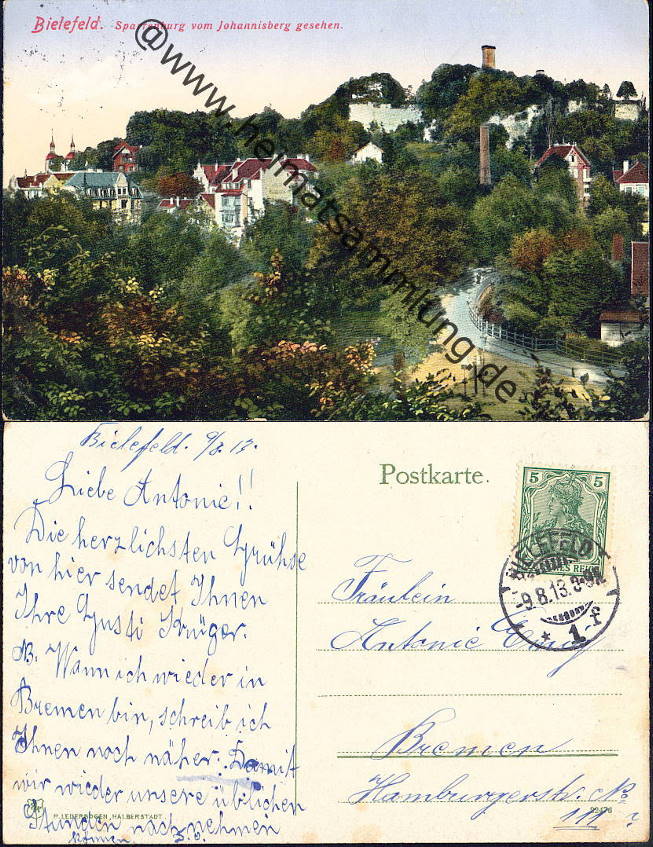 Bielefeld. Sparrenburg vom Johannisberg gesehen.
@www.heimatsammlung.de
Bielefeld. 9/8.13.
Liebe Antonie!!
Die herzlichsten Grühse
von hier sendet Ihnen
Ihre Gusti Krüger.
NB. Wann ich wieder in
Bremen bin, schreib ich
Ihnen noch näher. Damit
wir wieder unsere üblichen
Stunden nehmen
können. D. O.
H. LEDERBOGEN, HALBERSTADT.
Postkarte.
5 5
DEUTSCHES REICH
BIELEFELD
-9.8.13.
* 1 f
Fräulein
Antonie
Bremen
Hamburgerstr. No
111